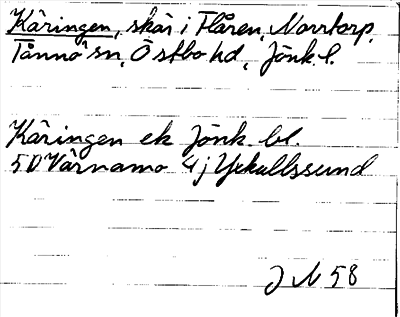 Käringen, skär i Flåren, Norrtorp,
Tånnö sn, Östbo hd, Jönk. l.
Käringen ek Jönk. bl.
5D Värnamo 4j Yxkullssund
J N 58